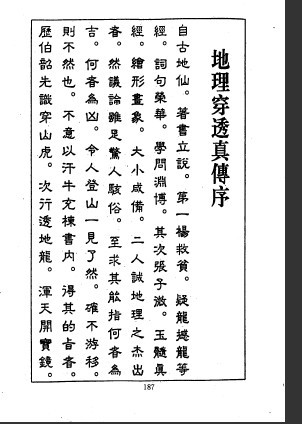 地理穿透真傳序
自古地仙。著書立說。第一楊救貧。疑龍撼龍等
經。詞句榮華。學問淵博。其次張子微。玉髓真
經。繪形畫象。大小咸備。二人誠地理之杰出
者。然議論雖足驚人駭俗。至求其能指何者為
吉。何者為凶。令人登山一見了然。確不游移。
則不然也。不意以汗牛充棟書內。得其的旨者。
歷伯韶先識穿山虎。次行透地龍。渾天開寶鏡。
187